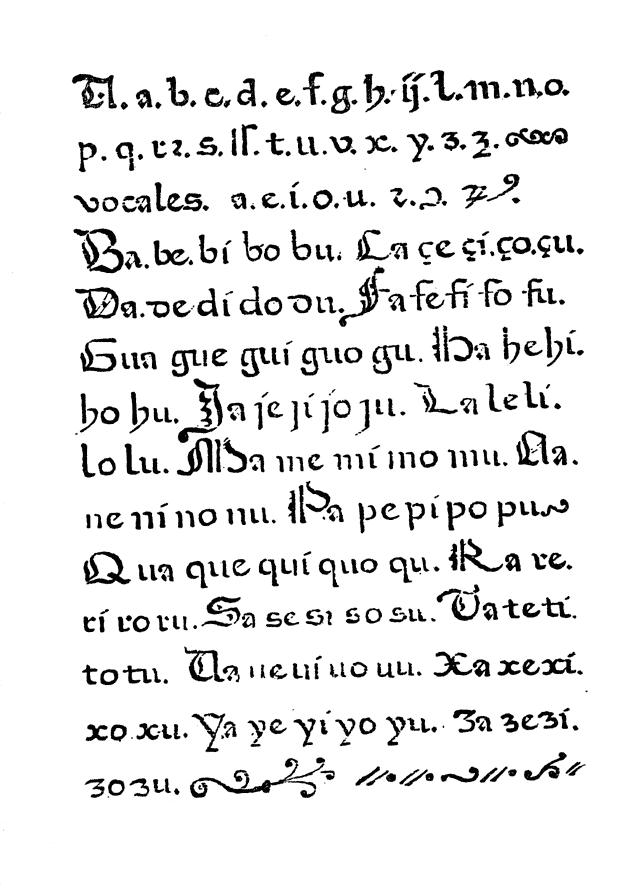 A. a. b. c. d. e. f. g. h. ij. l. m. n. o.
p. q. r ꝛ. s. ll. t. u. v. x. y. ʒ. ʒ.
vocales. a. e. i. o. u.
Ba. be. bi bo bu. Ca çe çi. ço. çu.
Da. de di do du. Fa fe fi fo fu.
Gua gue gui guo gu. Ha he hi.
ho hu. Ja je ji jo ju. La le li.
lo lu. Ma me mi mo mu. Na.
ne ni no nu. Pa pe pi po pu
Qua que qui quo qu. Ra re.
ri ro ru. Sa se si so su. Ta te ti.
to tu. Ua ue ui uo uu. Xa xe xi.
xo xu. Ya ye yi yo yu. Ʒa ʒe ʒi.
ʒo ʒu.